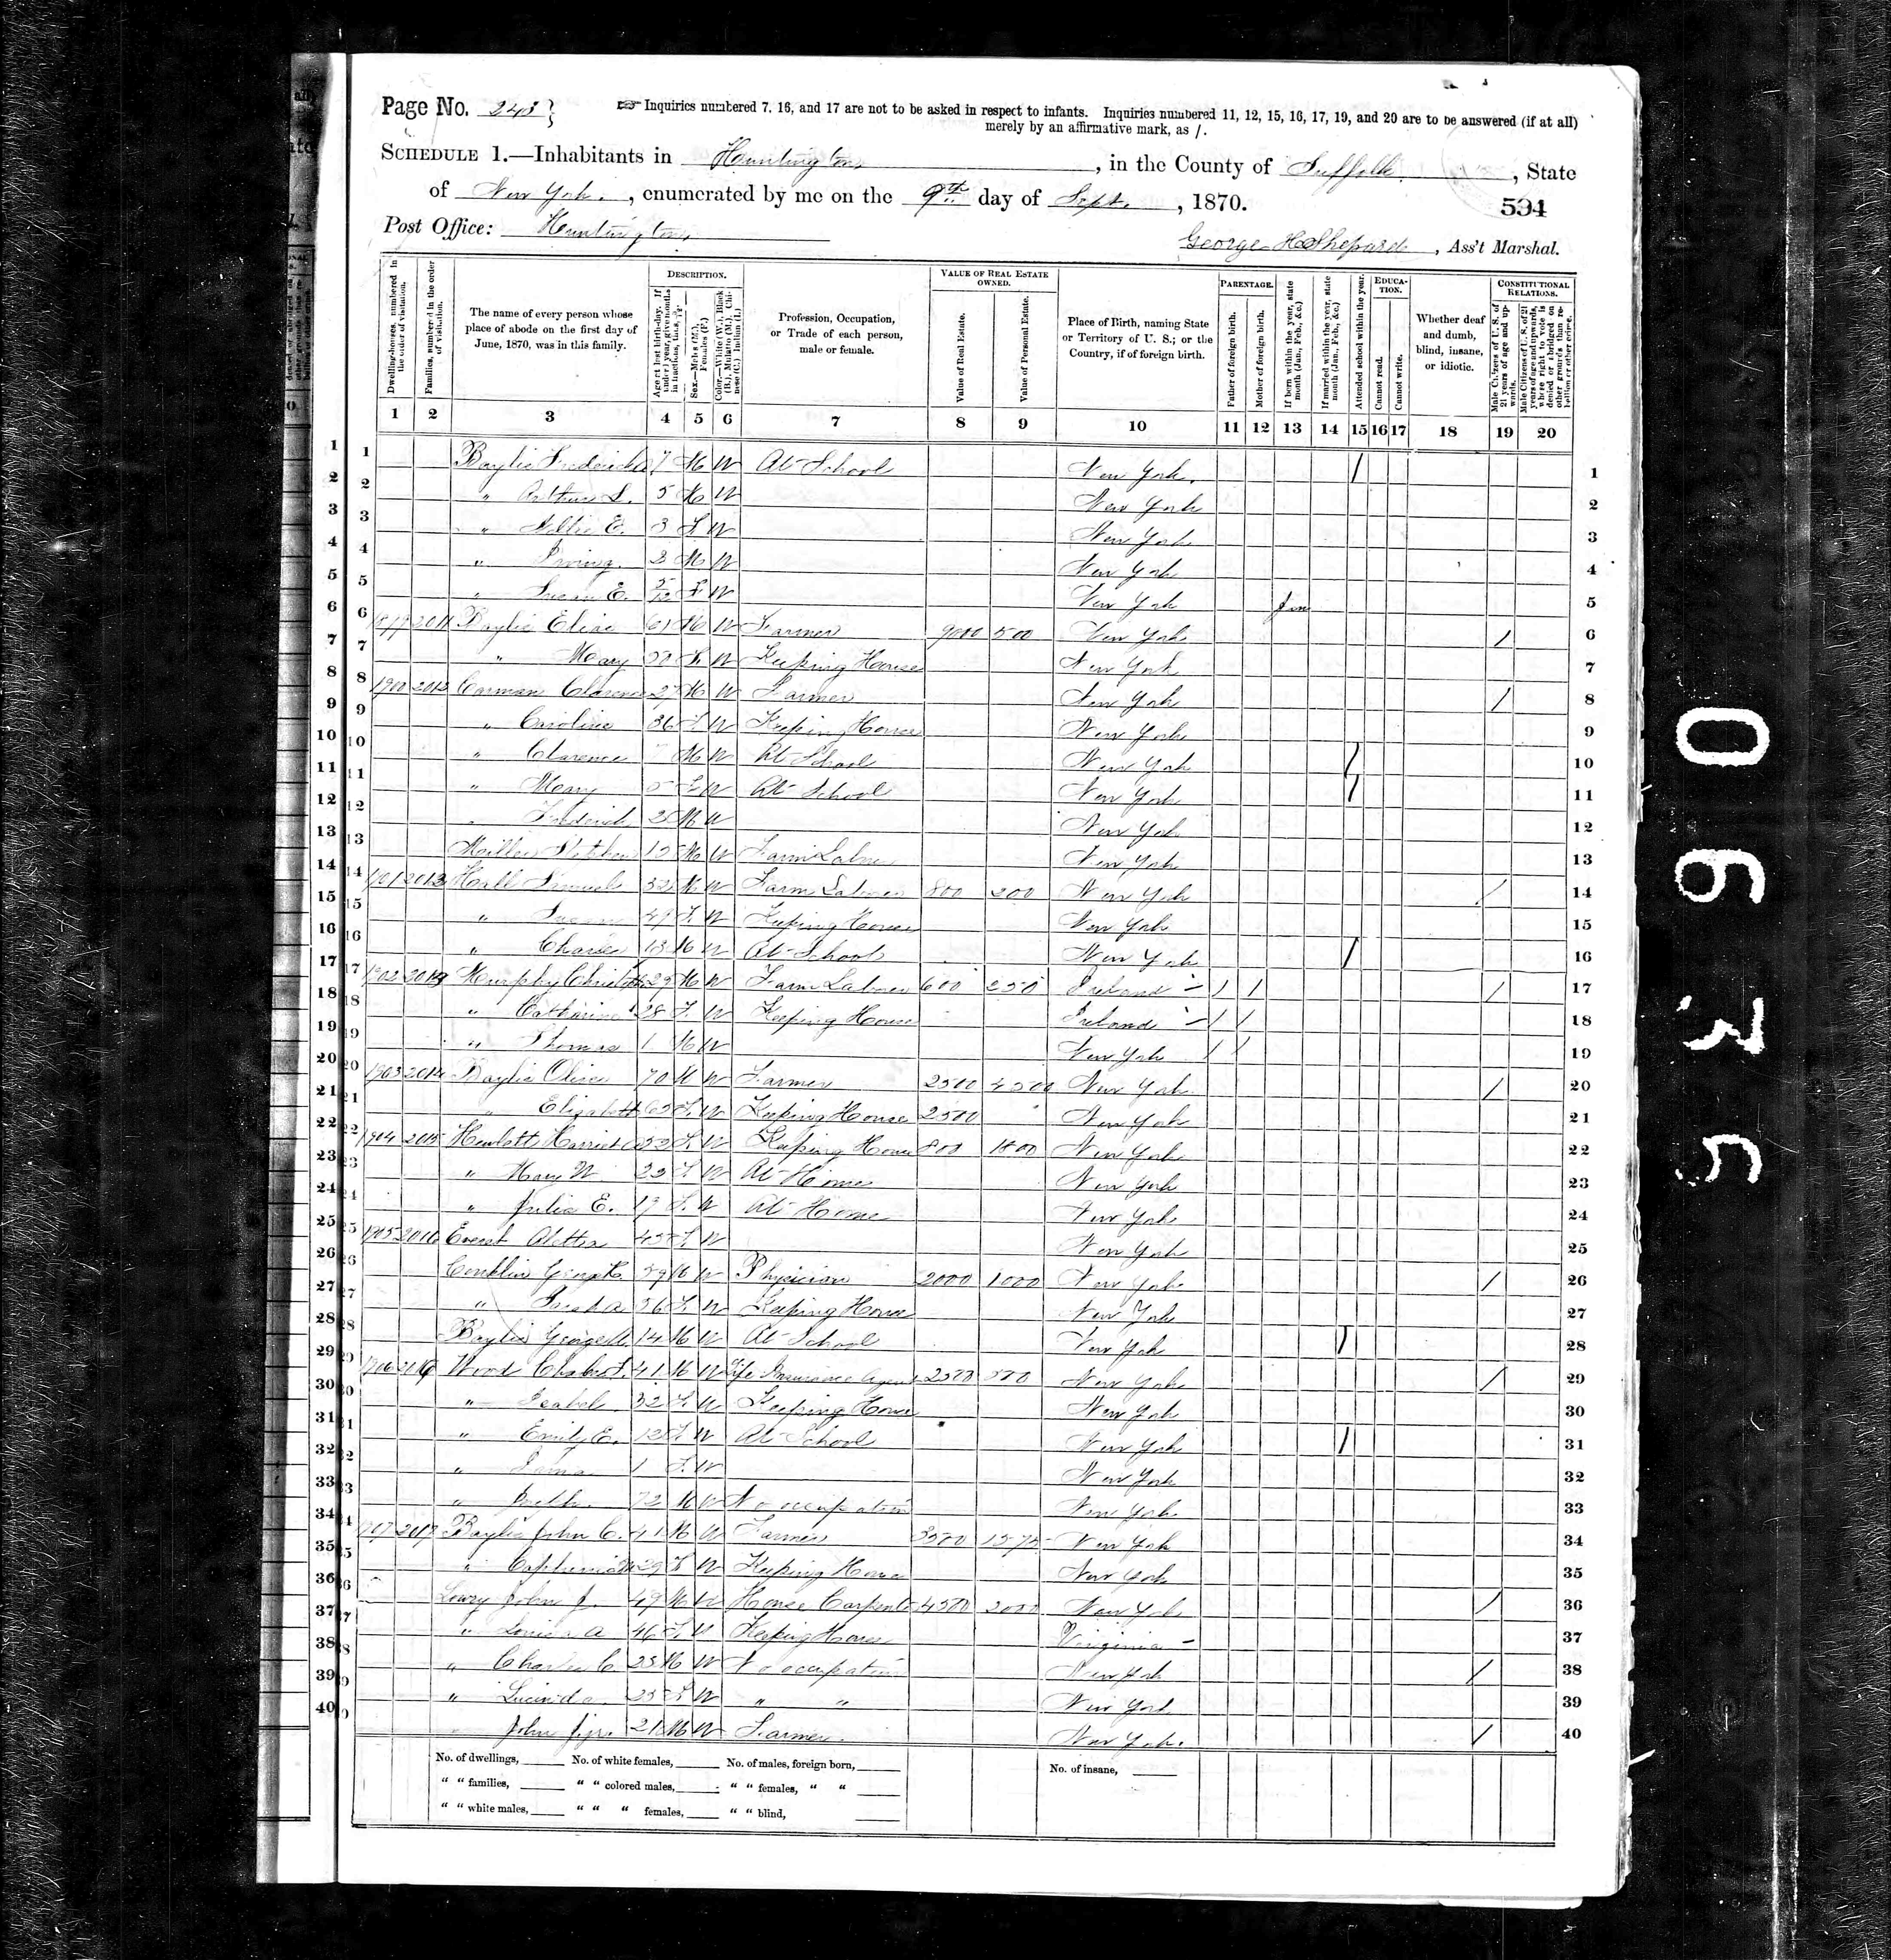 Page No. 243
Inquiries numbered 7, 16, and 17 are not to be asked in respect to infants. Inquiries numbered 11, 12, 15, 16, 17, 19, and 20 are to be answered (if at all)
merely by an affirmative mark, as /.
SCHEDULE 1.—Inhabitants in Huntington, in the County of Suffolk, State
of New York, enumerated by me on the 9th day of Sept., 1870.
594
Post Office: Huntington
George H Shepard, Ass't Marshal.
DESCRIPTION.
VALUE OF REAL ESTATE OWNED.
PARENTAGE.
EDUCATION.
CONSTITUTIONAL RELATIONS.
Dwelling-houses, numbered in the order of visitation.
Families, numbered in the order of visitation.
The name of every person whose place of abode on the first day of June, 1870, was in this family.
Age at last birth-day. If under 1 year, give months in fractions, thus, 3/12.
Sex.—Males (M.), Females (F.)
Color.—White (W.), Black (B.), Mulatto (M.), Chinese (C.), Indian (I.)
Profession, Occupation, or Trade of each person, male or female.
Value of Real Estate.
Value of Personal Estate.
Place of Birth, naming State or Territory of U. S.; or the Country, if of foreign birth.
Father of foreign birth.
Mother of foreign birth.
If born within the year, state month (Jan., Feb., &c.)
If married within the year, state month (Jan., Feb., &c.)
Attended school within the year.
Cannot read.
Cannot write.
Whether deaf and dumb, blind, insane, or idiotic.
Male Citizens of U. S. of 21 years of age and upwards.
Male Citizens of U. S. of 21 years of age and upwards, where right to vote is denied or abridged on other grounds than rebellion or other crime.
1 2 3 4 5 6 7 8 9 10 11 12 13 14 15 16 17 18 19 20
1 Baylis 7 M W At School New York / 1
2 " Arthur S. 5 M W New York 2
3 " E. 3 F W New York 3
4 " Irving M W New York 4
5 " Susan E. 5/12 F W New York Jan 5
6 2011 Baylis Elias 61 M W Farmer 9000 500 New York / 6
7 " Mary F W Keeping House New York 7
8 1900 2012 Carman Clarence M W Farmer New York / 8
9 " Caroline 36 F W Keeping House New York 9
10 " Clarence 7 M W At School New York / 10
11 " Mary 5 F W At School New York / 11
12 " Frederick M W New York 12
13 M W Farm Labor New York 13
14 1901 2013 Hall 52 M W Farm Laborer 800 200 New York / 14
15 " Susan 49 F W Keeping House New York 15
16 " Charles 13 M W At School New York / 16
17 1902 Murphy 29 M W Farm Laborer 600 250 Ireland / / / 17
18 " Catharine 28 F W Keeping House Ireland / / 18
19 " Thomas 1 M W New York / / 19
20 1903 2014 Baylis Oliver 70 M W Farmer 2500 4500 New York / 20
21 " Elizabeth F W Keeping House 2500 New York 21
22 1904 2015 Hewlett Harriet 52 F W Keeping House 800 1800 New York 22
23 " Mary W. 23 F W At Home New York 23
24 " Julia E. 19 F W At Home New York 24
25 1905 2016 F W New York 25
26 Conklin 39 M W Physician 2000 1000 New York / 26
27 " 36 F W Keeping House New York 27
28 Baylis George 14 M W At School New York / 28
29 1906 Wood 41 M W Life Insurance Agent 2500 500 New York / 29
30 " Isabel 32 F W Keeping House New York 30
31 " Emily E. 12 F W At School New York / 31
32 " 1 F W New York 32
33 " 72 M W No occupation New York 33
34 Baylis John C. 41 M W Farmer 3500 1575 New York 34
35 " 29 F W Keeping House New York 35
36 Lowry John J. 49 M W House Carpenter 4500 2000 New York / 36
37 " Louisa A 46 F W Keeping House Virginia 37
38 " Charles C. 23 M W No occupation New York / 38
39 " Lucinda F W " " New York 39
40 John J. jr. 21 M W Farmer New York / 40
No. of dwellings, No. of white females, No. of males, foreign born, No. of insane,
" " families, " " colored males, " " females, " "
" " white males, " " " females, " " blind,
0636